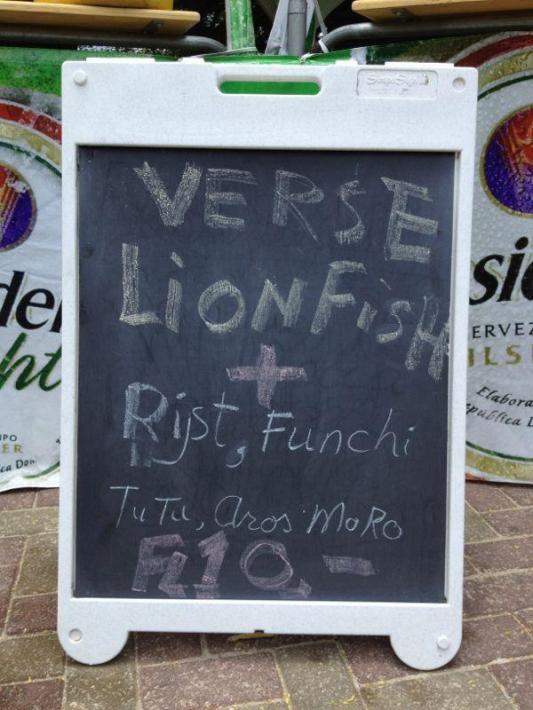 VERSE
LiONFiSH
+
Rijst, Funchi
TuTu, aros MoRo
FL10,-
ERVEZ
ILS
Elabora
epública D